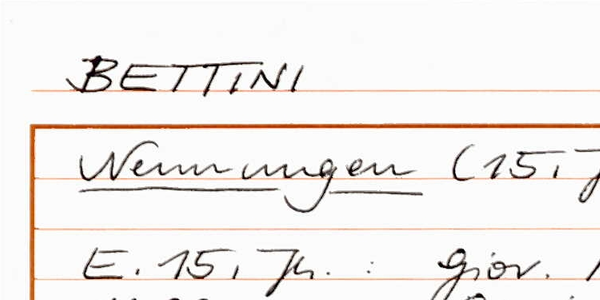 BETTINI
Nennungen (15. J
E. 15. Jh. : Giov.